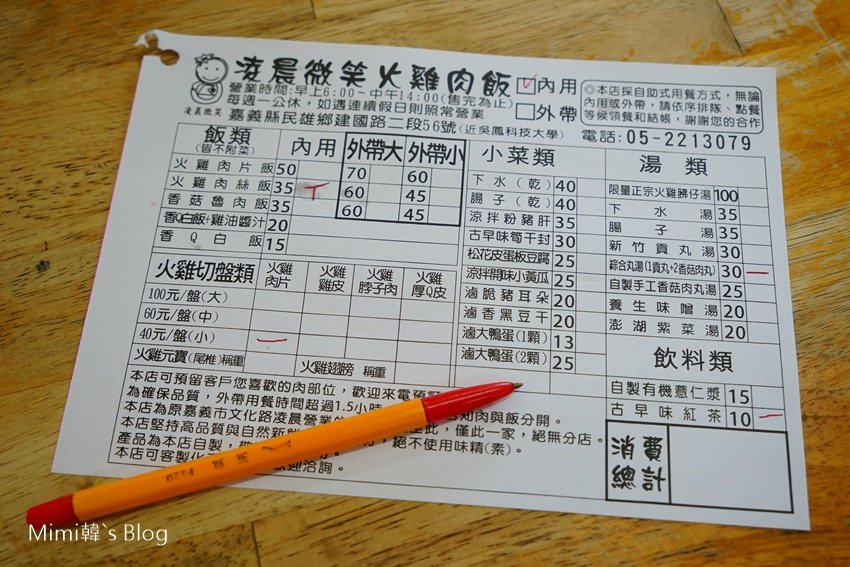 凌晨微笑火雞肉飯
凌晨微笑
營業時間:早上6:00~中午14:00(售完為止)
每週一公休，如遇連續假日則照常營業
嘉義縣民雄鄉建國路二段56號(近吳鳳科技大學)
電話:05-2213079
內用
外帶
◎本店採自助式用餐方式，無論
內用或外帶，請依序排隊、點餐
等候領餐和結帳，謝謝您的合作
飯類 內用 外帶大 外帶小
(皆不附菜)
火雞肉片飯 50 70 60
火雞肉絲飯 35 60 45
香菇魯肉飯 35 60 45
香Q白飯+雞油醬汁 20
香Q白飯 15
火雞切盤類 火雞肉片 火雞雞皮 火雞脖子肉 火雞厚Q皮
100元/盤(大)
60元/盤(中)
40元/盤(小)
火雞元寶(尾椎)稱重 火雞翅膀 稱重
小菜類
下水(乾) 40
腸子(乾) 40
涼拌粉豬肝 35
古早味筍干封 30
松花皮蛋板豆腐 25
涼拌開味小黃瓜 25
滷脆豬耳朵 20
滷香黑豆干 20
滷大鴨蛋(1顆) 13
滷大鴨蛋(2顆) 25
湯類
限量正宗火雞髴仔湯 100
下水湯 35
腸子湯 35
新竹貢丸湯 30
綜合丸湯(1貢丸+2香菇肉丸) 30
自製手工香菇肉丸湯 25
養生味噌湯 20
澎湖紫菜湯 20
飲料類
自製有機薏仁漿 15
古早味紅茶 10
消費
總計
本店可預留客戶您喜歡的肉部位，歡迎來電預
為確保品質，外帶用餐時間超過1.5小時
知肉與飯分開。
本店為原嘉義市文化路凌晨營業
至此，僅此一家，絕無分店。
本店堅持高品質與自然新
產品為本店自製，
絕不使用味精(素)。
本店可客製化
歡迎洽詢。
Mimi韓`s Blog